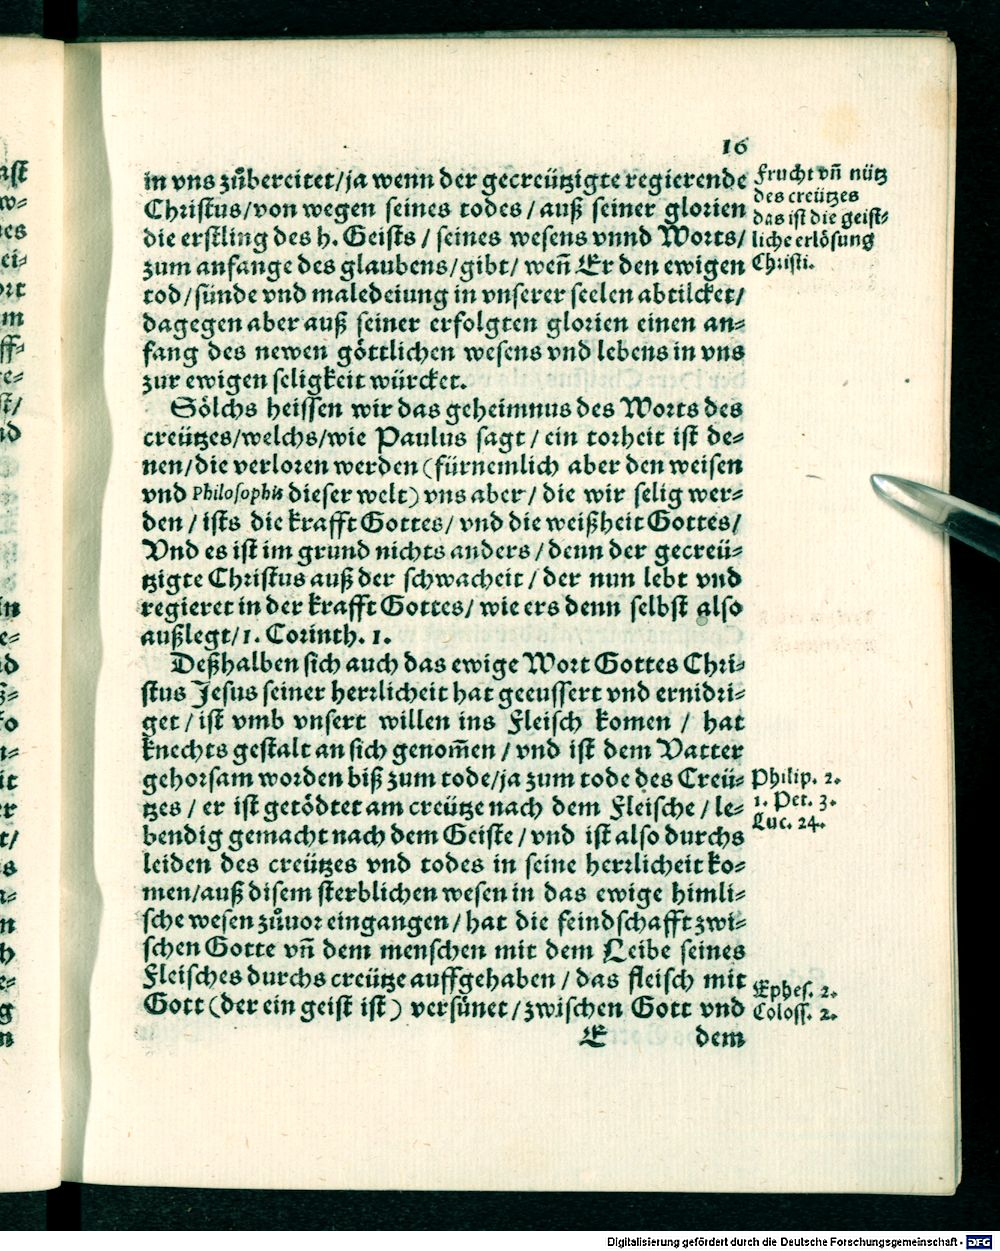 16
in vns zůbereitet/ja wenn der gecreützigte regierende
Christus/von wegen seines todes/auß seiner glorien
die erstling des h. Geists/seines wesens vnnd Worts/
zum anfange des glaubens/gibt/weñ Er den ewigen
tod/sünde vnd maledeiung in vnserer seelen abtilcket/
dagegen aber auß seiner erfolgten glorien einen an=
fang des newen göttlichen wesens vnd lebens in vns
zur ewigen seligkeit würcket.
Frucht vñ nütz
des creützes
das ist die geist=
liche erlösung
Christi.
Sölchs heissen wir das geheimnus des Worts des
creützes/welchs/wie Paulus sagt/ein torheit ist de=
nen/die verloren werden (fürnemlich aber den weisen
vnd Philosophis dieser welt) vns aber/die wir selig wer=
den/ists die krafft Gottes/vnd die weißheit Gottes/
Vnd es ist im grund nichts anders/denn der gecreü=
tzigte Christus auß der schwacheit/der nun lebt vnd
regieret in der krafft Gottes/wie ers denn selbst also
außlegt/1. Corinth. 1.
Deßhalben sich auch das ewige Wort Gottes Chri=
stus Jesus seiner herrlicheit hat geeussert vnd ernidri=
get/ist vmb vnsert willen ins Fleisch komen/hat
knechts gestalt an sich genom̃en/vnd ist dem Vatter
gehorsam worden biß zum tode/ja zum tode des Creü=
tzes/er ist getödtet am creütze nach dem Fleische/le=
bendig gemacht nach dem Geiste/vnd ist also durchs
leiden des creützes vnd todes in seine herrlicheit ko=
men/auß disem sterblichen wesen in das ewige himli=
sche wesen zůuor eingangen/hat die feindschafft zwi=
schen Gotte vñ dem menschen mit dem Leibe seines
Fleisches durchs creütze auffgehaben/das fleisch mit
Gott (der ein geist ist) versünet/zwischen Gott vnd
Philip. 2.
1. Pet. 3.
Luc. 24.
Ephes. 2.
Coloss. 2.
E dem
Digitalisierung gefördert durch die Deutsche Forschungsgemeinschaft - DFG